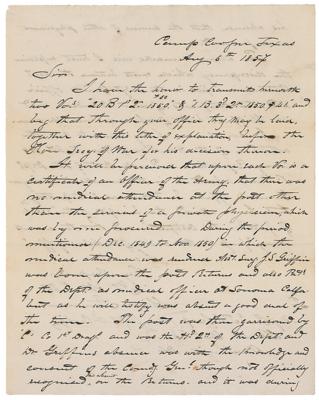 Camp Cooper, Texas
Aug 6th 1857
Sir
I have the honor to transmit herewith
two Vo. 20 B.
beg that through your office they may be laid,
together with this letter of explanation, before the
Hon. Secy. of War for his decision thereon.
It will be perceived that upon each Vo is a
certificate of an Officer of the Army, that there was
no medical attendance at the post, other
than the services of a private physician, which
was by me procured. During the period
mentioned (Dec. 1849 to Nov 1850) in which the
medical attendance was rendered Asst. Surg J. S. Griffin
was borne upon the post Returns and also
of the Dept. as medical officer at Sonoma Calfa
but as he will testify was absent a good deal of
the time. The post was then garrisoned by
C. Co 1st Drags and was the Hd. Qrs of the Dept. and
Dr Griffin's absence was with the knowledge and
consent of the Comdg Genl. though not officially
recognised, on the Returns. and it was during